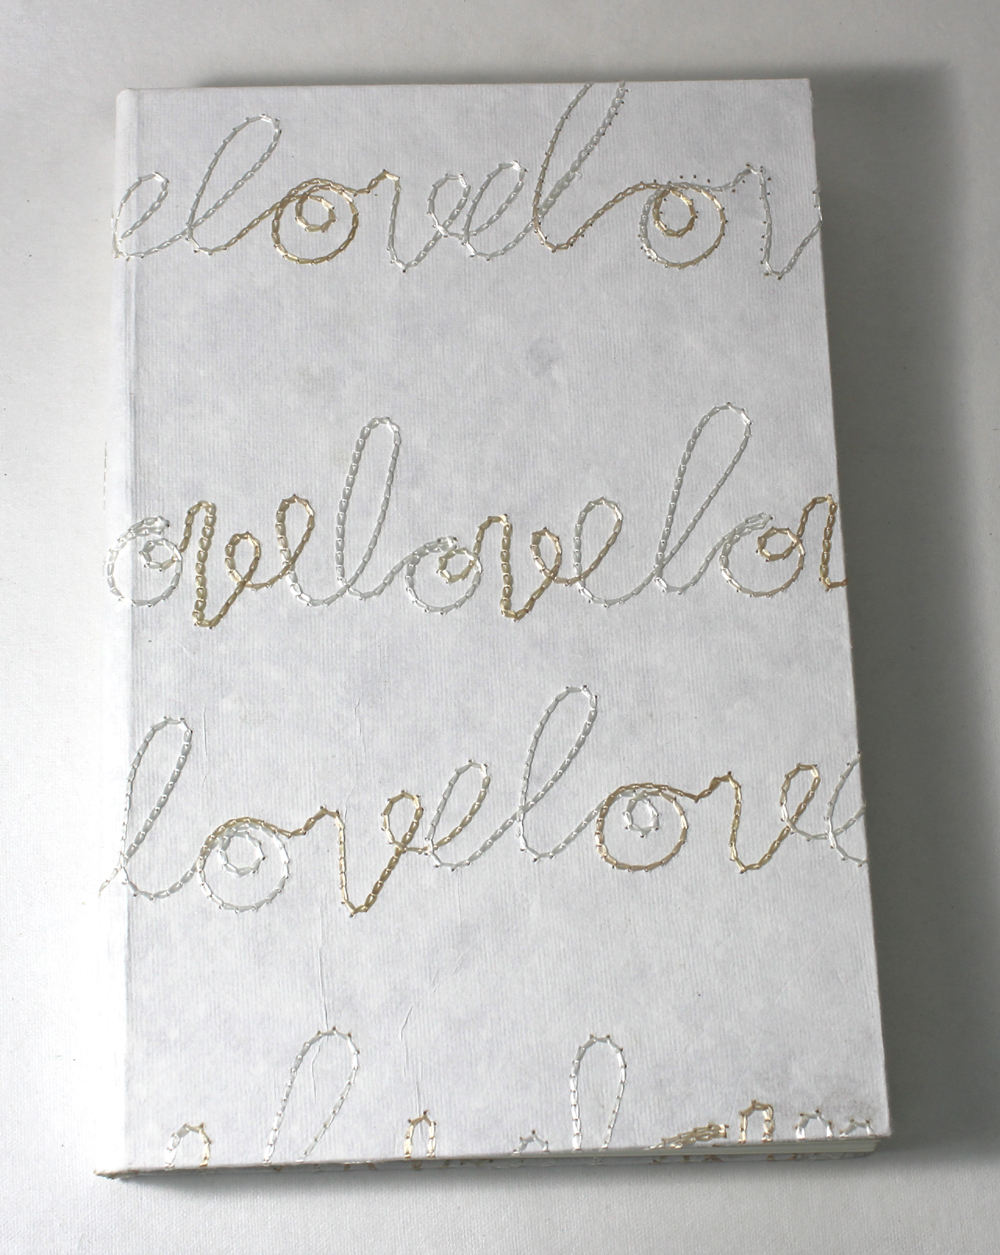 elovelov
ovelovelov
lovelove